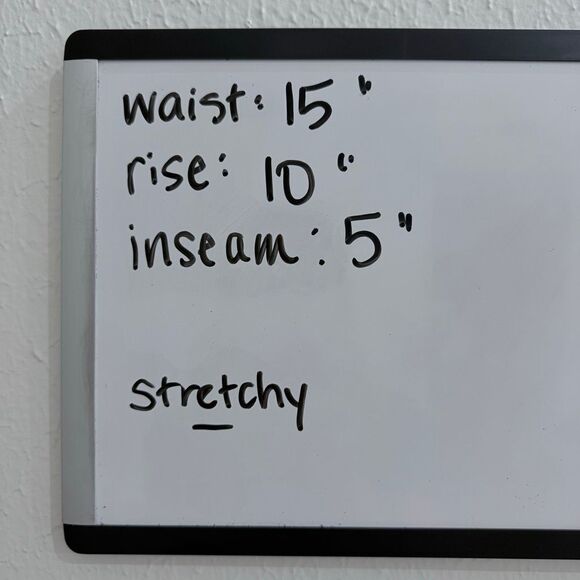 waist: 15"
rise: 10"
inseam: 5"
stretchy